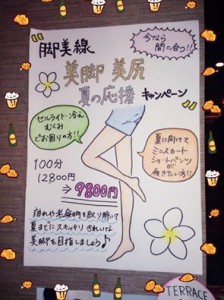 今なら
間に合う!!
脚美線
美脚 美尻
夏の応援 キャンペーン
セルライト・冷え
むくみ
でお困りの方!
夏に向けて
ミニスカート
ショートパンツが
履きたい方!!
100分
12800円
→9800円
疲れや老廃物を取り除いて
夏までにスッキリきれいな
美脚を目指しましょう♪
TERRACE